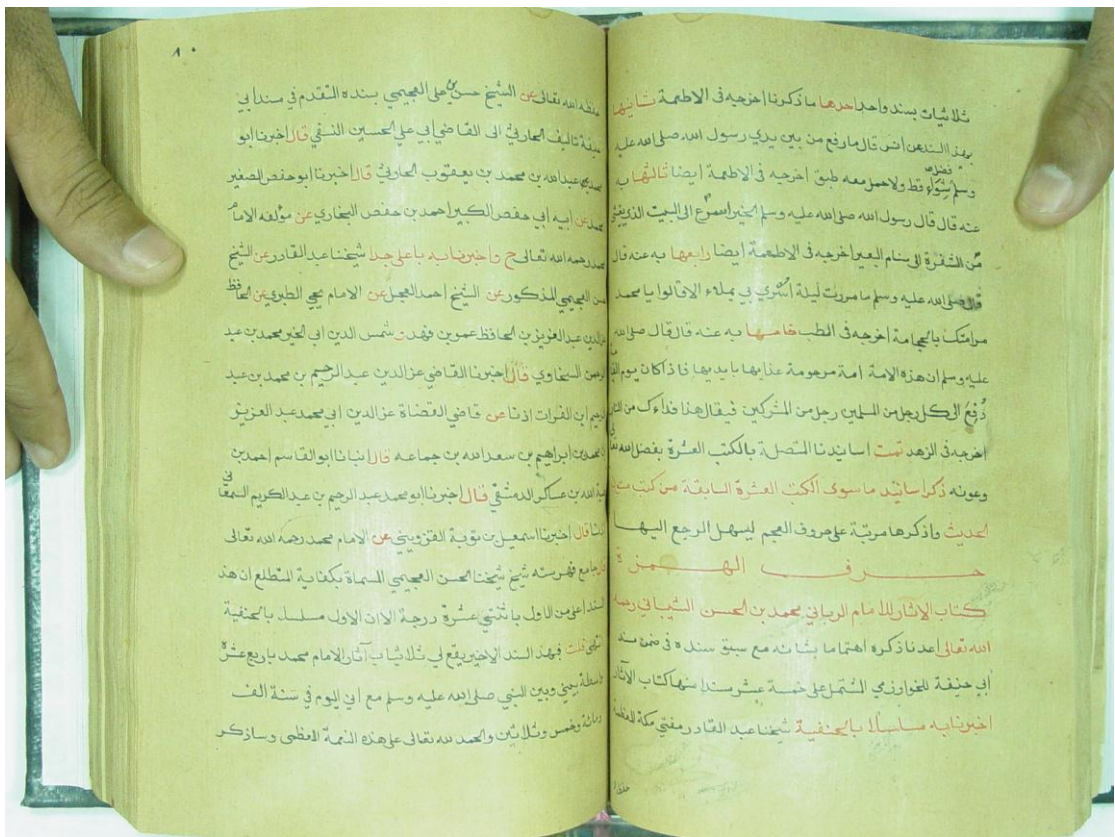 ثلاثيات بسند واحد احدها ما ذكرنا اخرجه في الاطعمة ثانيها
بهذا السند عن انس قال ما رفع من بين يدي رسول الله صلى الله عليه
وسلم فضل شواء قط ولا حمل معه طبق اخرجه في الاطعمة ايضا ثالثها به
عنه قال قال رسول الله صلى الله عليه وسلم الخير اسرع الى البيت الذي يغشى
من الشفرة الى سنام البعير اخرجه في الاطعمة ايضا رابعها به عنه قال
قال صلى الله عليه وسلم ما مررت ليلة اسري بي بملاء الا قالوا يا محمد
مر امتك بالحجامة اخرجه في الطب خامسها به عنه قال قال صلى الله
عليه وسلم ان هذه الامة امة مرحومة عذابها بايديها فاذا كان يوم
دُفِعَ الى كل رجل من المسلمين رجل من المشركين فيقال هذا فداءك من النار
اخرجه في الزهد تمت اسانيدنا المتصلة بالكتب العشرة بفضل الله
وعونه ذكر اسانيد ما سوى الكتب العشرة السابقة من كتب
الحديث واذكرها مرتبة على حروف العجم ليسهل الرجع اليها
حرف الهمزة
كتاب الاثار للامام الرباني محمد بن الحسن الشيباني رحمه
الله تعالى اعدنا ذكره اهتماما بشانه مع سبق سنده في ضمن سند
ابي حنيفة للخوارزمي المشتمل على خمسة عشر سندا منها كتاب الآثار
اخبرنا به مسلسلا بالحنفية شيخنا عبد القادر مفتي مكة المعظمة
٨٠
حفظه الله تعالى عن الشيخ حسن بن علي العجيمي بسنده المتقدم في سند ابي
حنيفة تاليف الحارثي الى القاضي ابي علي الحسين النسفي قال اخبرنا ابو
محمد عبد الله بن محمد بن يعقوب الحارثي قال اخبرنا ابو حفص الصغير
محمد عن ابيه ابي حفص الكبير احمد بن حفص البخاري عن مؤلفه الامام
محمد رحمه الله تعالى ح واخبرنا به باعلى جدا شيخنا عبد القادر عن الشيخ
حسن العجيمي المذكور عن الشيخ احمد العجل عن الامام يحيى الطبري عن الحافظ
عز الدين عبد العزيز بن الحافظ عمر بن فهد وشمس الدين ابي الخير محمد بن عبد
الرحمن السخاوي قال اخبرنا القاضي عز الدين عبد الرحيم بن محمد بن عبد
الرحيم ابن الفرات اذنا عن قاضي القضاة عز الدين ابي محمد عبد العزيز
بن محمد بن ابراهيم بن سعد الله بن جماعه قال انبانا ابو القاسم احمد بن
هبة الله بن عساكر الدمشقي قال اخبرنا ابو محمد عبد الرحيم بن عبد الكريم السمعاني
قال اخبرنا اسمعيل بن توبة القزويني عن الامام محمد رحمه الله تعالى
قال جامع فهرسته شيخ شيخنا الحسن العجيمي المسماة بكفاية المتطلع ان هذا
السند اعلى من الاول باثنتي عشرة درجة الا ان الاول مسلسل بالحنفية
انتهى قلت فبهذا السند الاخير يقع لي ثلاثيات آثار الامام محمد باربع عشرة
واسطة بيني وبين النبي صلى الله عليه وسلم مع اني اليوم في سنة الف
ومائة وخمس وثلاثين والحمد لله تعالى على هذه النعمة العظمى وساذكر